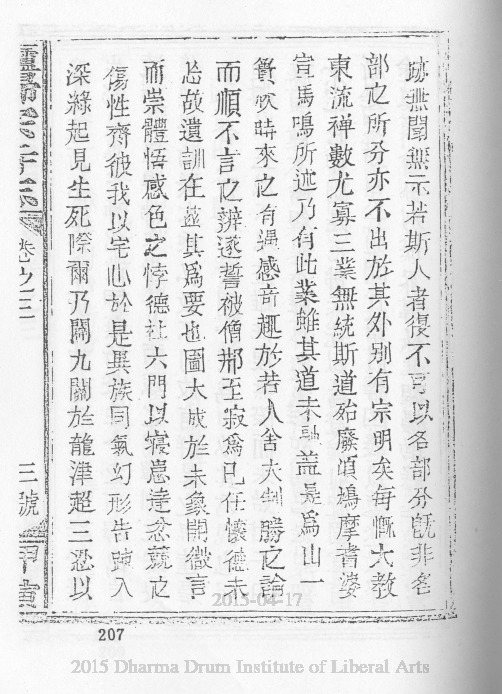 跡無聞無示若斯人者復不可以名部分旣非名
部之所分亦不出於其外別有宗明矣每慨大教
東流禅數尤寡三業無統斯道殆廢頃鳩摩耆婆
宣馬鳴所述乃有此業雖其道未融盖是爲山一
簣欣時來之有遇感奇趣於若人舍夫制勝之論
而順不言之辨遂誓被僧那至寂爲己任懷德未
忘故遺訓在兹其爲要也圖大成於未象開微言
而崇體悟惑色之悖德杜六門以寝患達忿競之
傷性齊彼我以宅心於是異族同氣幻形告踈入
深緣起見生死際爾乃闢九關於龍津超三忍以
卷之三
三
號
甲寅
207
2015-04-17
2015 Dharma Drum Institute of Liberal Arts